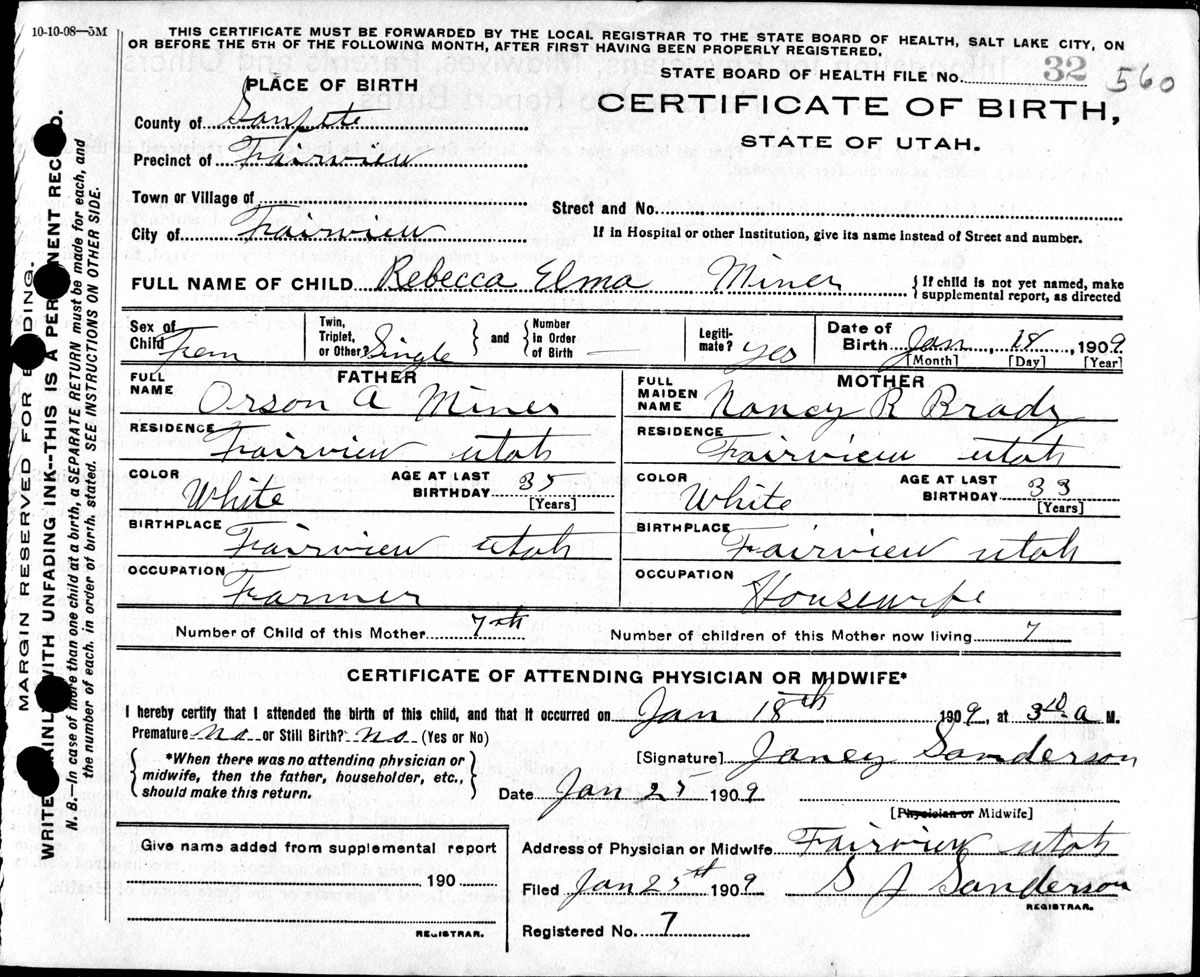 10-10-08—5M
THIS CERTIFICATE MUST BE FORWARDED BY THE LOCAL REGISTRAR TO THE STATE BOARD OF HEALTH, SALT LAKE CITY, ON
OR BEFORE THE 5TH OF THE FOLLOWING MONTH, AFTER FIRST HAVING BEEN PROPERLY REGISTERED.
STATE BOARD OF HEALTH FILE No. 32 560
PLACE OF BIRTH
CERTIFICATE OF BIRTH,
STATE OF UTAH.
County of Sanpete
Precinct of Fairview
Town or Village of
Street and No.
City of Fairview
If in Hospital or other Institution, give its name instead of Street and number.
FULL NAME OF CHILD Rebecca Elma Miner
{ If child is not yet named, make
supplemental report, as directed
Sex of Child Fem
Twin, Triplet, or Other? Single } and { Number In Order of Birth —
Legiti- mate? yes
Date of Birth Jan, 18, 1909
[Month] [Day] [Year]
FATHER
FULL NAME Orson A Miner
RESIDENCE Fairview Utah
COLOR White
AGE AT LAST BIRTHDAY 35 [Years]
BIRTHPLACE Fairview Utah
OCCUPATION Farmer
MOTHER
FULL MAIDEN NAME Nancy R Brady
RESIDENCE Fairview Utah
COLOR White
AGE AT LAST BIRTHDAY 33 [Years]
BIRTHPLACE Fairview Utah
OCCUPATION Housewife
Number of Child of this Mother 7th
Number of children of this Mother now living 7
CERTIFICATE OF ATTENDING PHYSICIAN OR MIDWIFE*
I hereby certify that I attended the birth of this child, and that it occurred on Jan 18th 1909, at 3 10 a M.
Premature no or Still Birth? no (Yes or No)
{ *When there was no attending physician or
midwife, then the father, householder, etc.,
should make this return. }
[Signature] Janey Sanderson
Date Jan 25 1909
[Physician or Midwife]
Address of Physician or Midwife Fairview Utah
Filed Jan 25th 1909 S J Sanderson
REGISTRAR.
Registered No. 7
Give name added from supplemental report
190
REGISTRAR.
MARGIN RESERVED FOR BINDING.
WRITE PLAINLY WITH UNFADING INK--THIS IS A PERMANENT RECORD.
N. B.—In case of more than one child at a birth, a SEPARATE RETURN must be made for each, and
the number of each, in order of birth, stated. SEE INSTRUCTIONS ON OTHER SIDE.